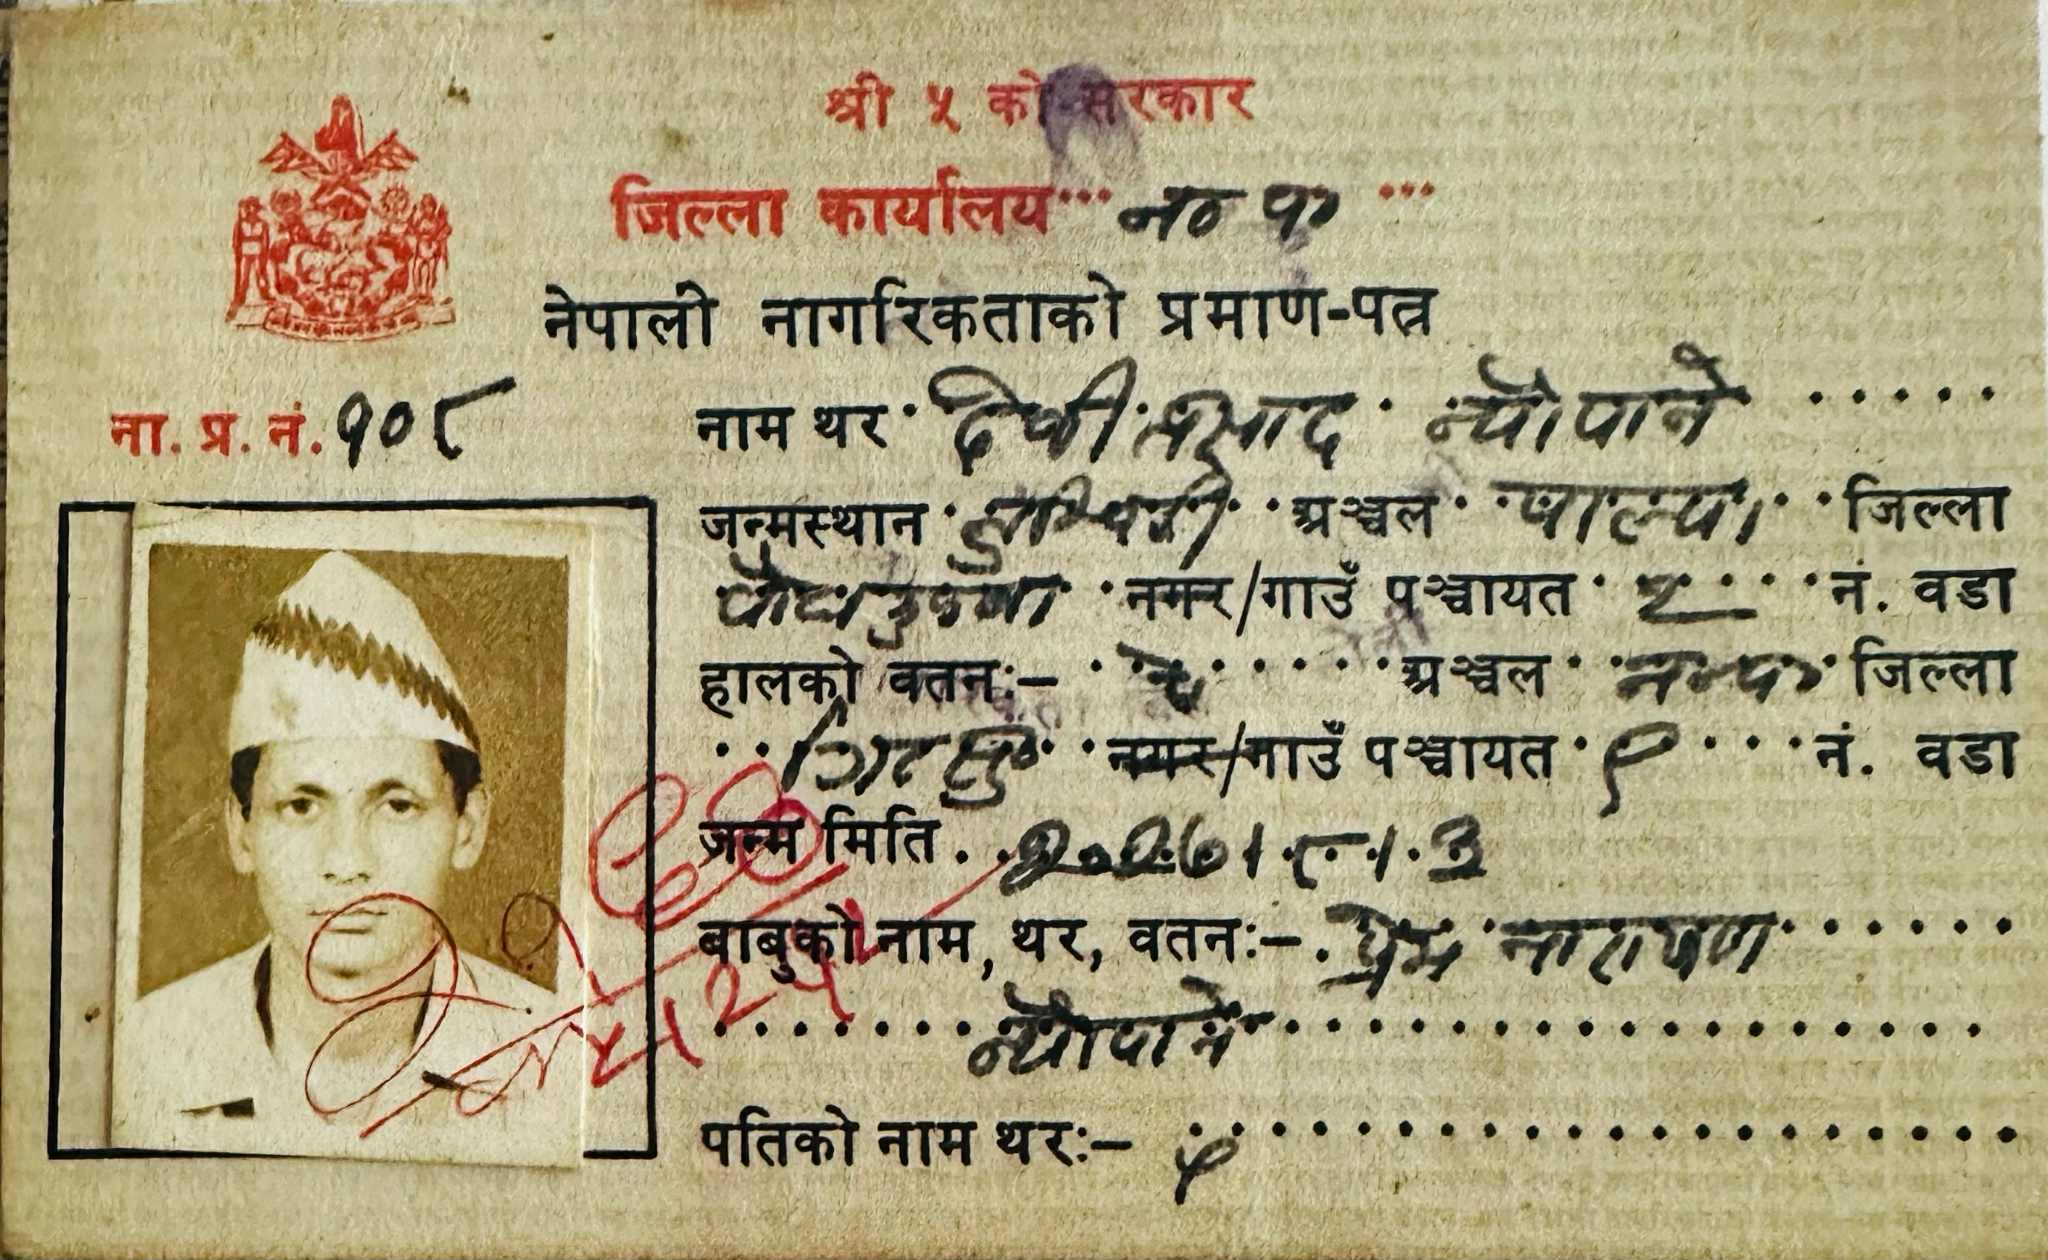 श्री ५ को सरकार
जिल्ला कार्यालय ... न० प० ...
नेपाली नागरिकताको प्रमाण-पत्र
ना. प्र. नं. १०८
नाम थर देवी प्रसाद न्यौपाने
जन्मस्थान लुम्बिनी अञ्चल पाल्पा जिल्ला
नगर/गाउँ पञ्चायत २ नं. वडा
हालको वतन:- अञ्चल न० प० जिल्ला
नगर/गाउँ पञ्चायत ९ नं. वडा
जन्म मिति २०२७।८।३
बाबुको नाम, थर, वतन:- प्रेम नारायण
न्यौपाने
पतिको नाम थर:-